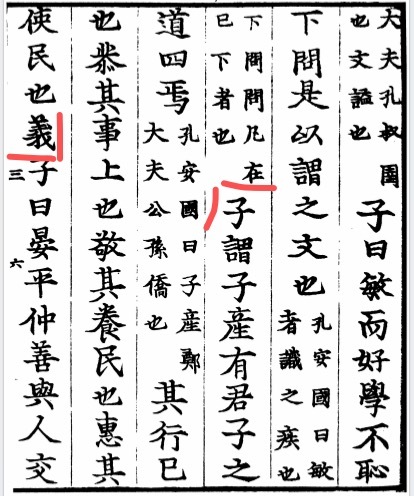 大夫孔叔圉
也文謚也
子曰敏而好學不恥
下問是以謂之文也
孔安國曰敏
者識之疾也
下問問凡在
已下者也
子謂子產有君子之
道四焉
孔安國曰子產鄭
大夫公孫僑也
其行已
也恭其事上也敬其養民也惠其
使民也義子曰晏平仲善與人交
三
六